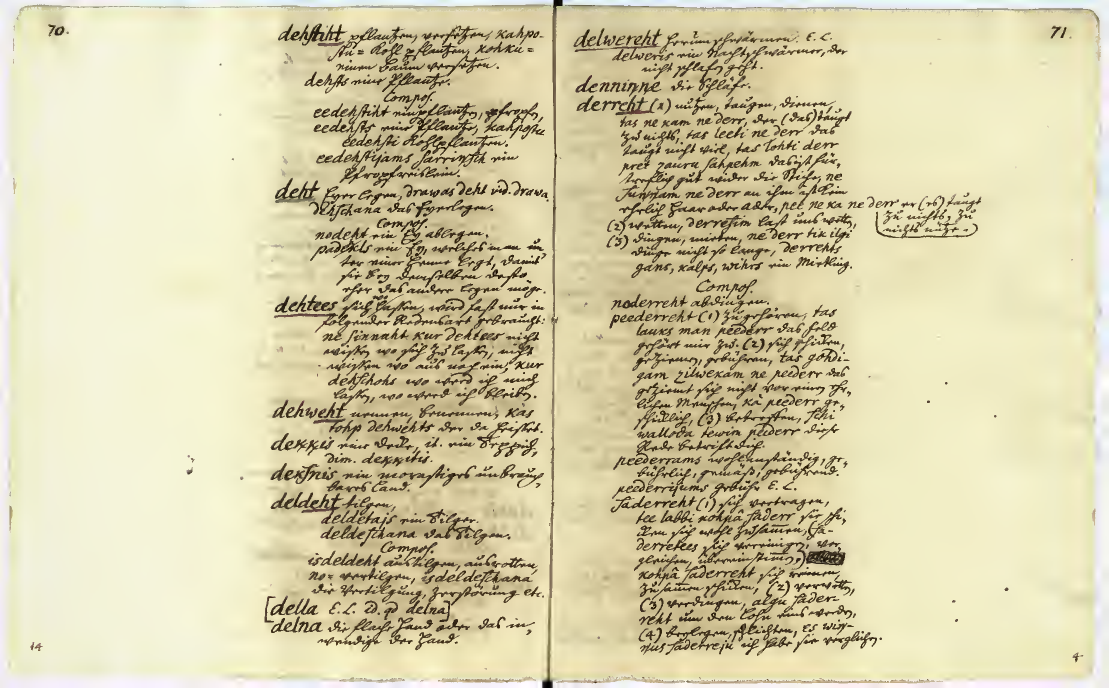 70.
dehstiht pflantzen, versetzen, kahpo-
stu = Kohl pflantzen, kohku =
einen Baum versetzen.
dehsts eine Pflantze.
Compos.
eedehstiht einpflantzen, pfropfen,
eedehsts eine Pflantze, kahpostu
eedehsti Kohlpflantzen.
eedehstijams sarrinsch ein
Pfropfreislein.
deht Eyer legen, drawas deht vid. drawa.
dehschana das Eyerlegen.
Compos.
nodeht ein Ey ablegen.
padehlis ein Ey, welches man un-
ter einer Henne legt, damit
sie bey demselben desto
eher das andere legen möge.
dehtees sich lassen, wird fast nur in
folgender Redensart gebraucht:
ne sinnaht kur dehtees nicht
wissen wo sich zu lassen, nicht
wissen wo aus noch ein, kur
dehschohs wo werd ich mich
lassen, wo werd ich bleiben.
dehweht nennen, benennen, kas
tohp dehwehts der da heisset.
dekkis eine Decke, it. ein Teppich,
dim. dekkitis.
deksnis ein morastiges unbrauch-
bares Land.
deldeht tilgen,
deldetajs ein Tilger.
deldeschana das Tilgen.
Compos.
isdeldeht austilgen, ausrotten,
no= vertilgen, isdeldeschana
die Vertilgung, Zerstörung etc.
[della E. L. D. qd delna]
delna die flache Hand oder das in-
wendige der Hand.
14
71.
delwereht herumschwärmen. E. L.
delweris ein Nachtschwärmer, der
nicht schlafen geht.
denninne die Schläfe.
derreht (1) nutzen, taugen, dienen,
tas ne kam ne derr, der (das) taugt
zu nichts, tas leeti ne derr das
taugt nicht viel, tas lohti derr
pret zauru sahpehm das ist für-
treflich gut wider die Stiche, ne
sunnam ne derr an ihm ist kein
ehrlich Haar oder Ader, pee ne ka ne derr er (es) taugt
zu nichts, zu
nichts nütze.
(2) wetten, derresim lasst uns wetten,
(3) dingen, mieten, ne derr tik ilgi
dinge nicht so lange, derrehts
gans, kalps, wihrs ein Mietling.
Compos.
noderreht abdingen.
peederreht (1) zugehören, tas
lauks man peederr das Feld
gehört mir zu. (2) sich schicken,
geziemen, gebühren, tas gohdi-
gam zilwekam ne peederr das
geziemt sich nicht vor einen ehr-
lichen Menschen, kā peederr ge-
schicklich, (3) betreffen, schi
walloda tewim peederr diese
Rede betrift dich.
peederrams wohlanständig, ge-
bührlich, gemäß, gebührend.
peederrisums Gebühr E. L.
saderreht (1) sich vertragen,
tee labbi kohpā saderr sie schi-
cken sich wohl zusammen, sa-
derretees sich vereinigen, ver-
gleichen, übereinstimmen,
kohpā saderreht sich reimen,
zusammen schicken, (2) verwetten,
(3) verdingen, algu sader-
reht um den Lohn eins werden,
(4) beylegen, schlichten, es wiņ-
ņus saderreju ich habe sie verglichen.
4